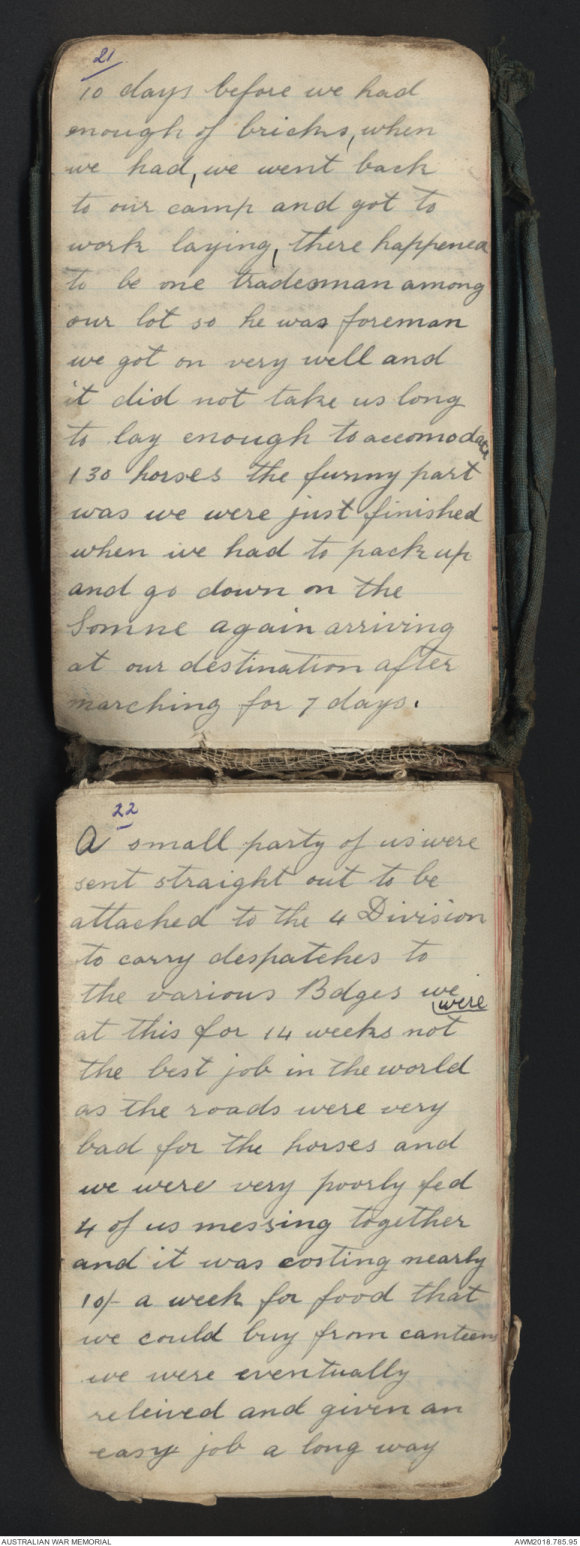 21
10 days before we had
enough of bricks, when
we had, we went back
to our camp and got to
work laying, there happened
to be one tradesman among
our lot so he was foreman
we got on very well and
it did not take us long
to lay enough to accomodate
130 horses the funny part
was we were just finished
when we had to pack up
and go down on the
Somne again arriving
at our destination after
marching for 7 days.
22
A small party of us were
sent straight out to be
attached to the 4 Division
to carry despatches to
the various Bdges we were
at this for 14 weeks not
the best job in the world
as the roads were very
bad for the horses and
we were very poorly fed
4 of us messing together
and it was costing nearly
10/- a week for food that
we could buy from canteens
we were eventually
releived and given an
easy job a long way
AUSTRALIAN WAR MEMORIAL
AWM2018.785.95